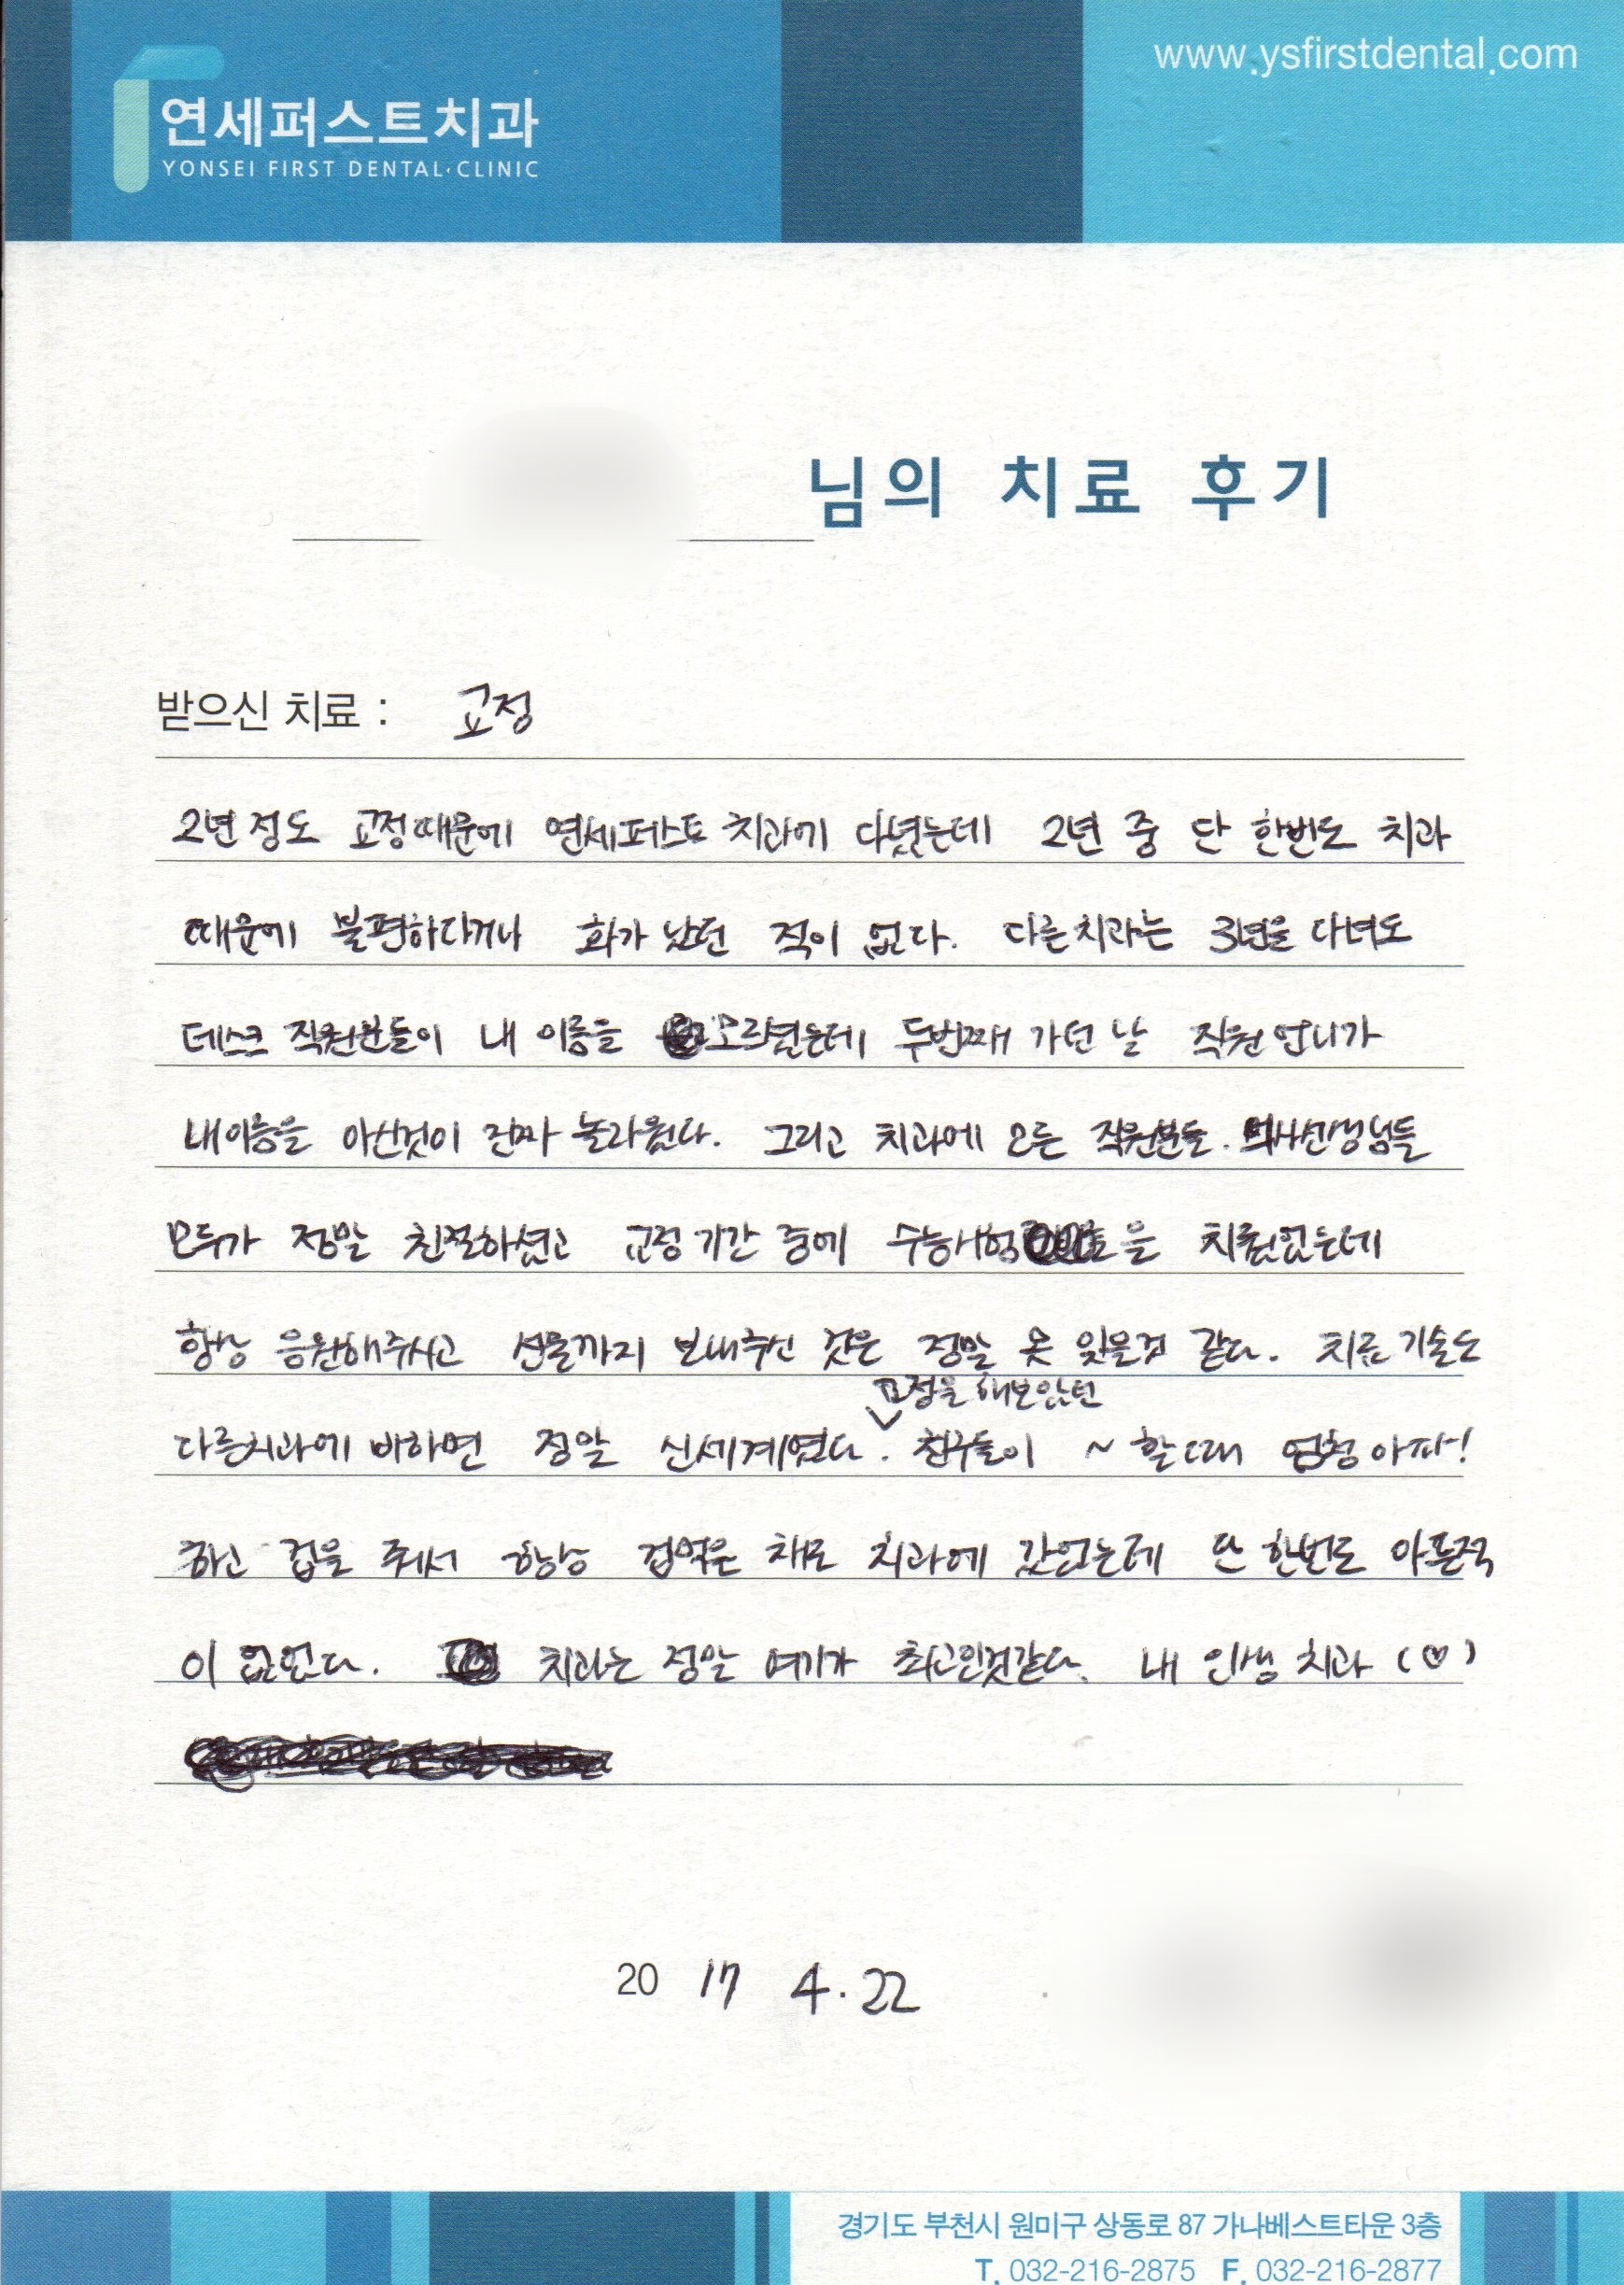 www.ysfirstdental.com
연세퍼스트치과
YONSEI FIRST DENTAL CLINIC
님의 치료 후기
받으신 치료 : 교정
2년 정도 교정때문에 연세퍼스트 치과에 다녔는데 2년 중 단 한번도 치과
때문에 불편하다거나 화가 났던 적이 없다. 다른치과는 3년을 다녀도
데스크 직원분들이 내 이름을 모르셨는데 두번째 가던 날 직원언니가
내이름을 아신것이 진짜 놀라웠다. 그리고 치과에 모든 직원분들. 의사선생님들
모두가 정말 친절하셨고 교정기간 중에 수능시험을 치뤘었는데
항상 응원해주시고 선물까지 보내주신 것은 정말 못 잊을것 같다. 치료 기술도
교정을 해보았던
다른치과에 비하면 정말 신세계였다. 친구들이 ~ 할때 엄청 아파!
하고 겁을 줘서 항상 겁먹은 채로 치과에 갔었는데 단 한번도 아픈적
이 없었다. 치과는 정말 여기가 최고인것같다. 내 인생 치과 (♡)
20 17 4. 22
경기도 부천시 원미구 상동로 87 가나베스트타운 3층
T. 032-216-2875 F. 032-216-2877